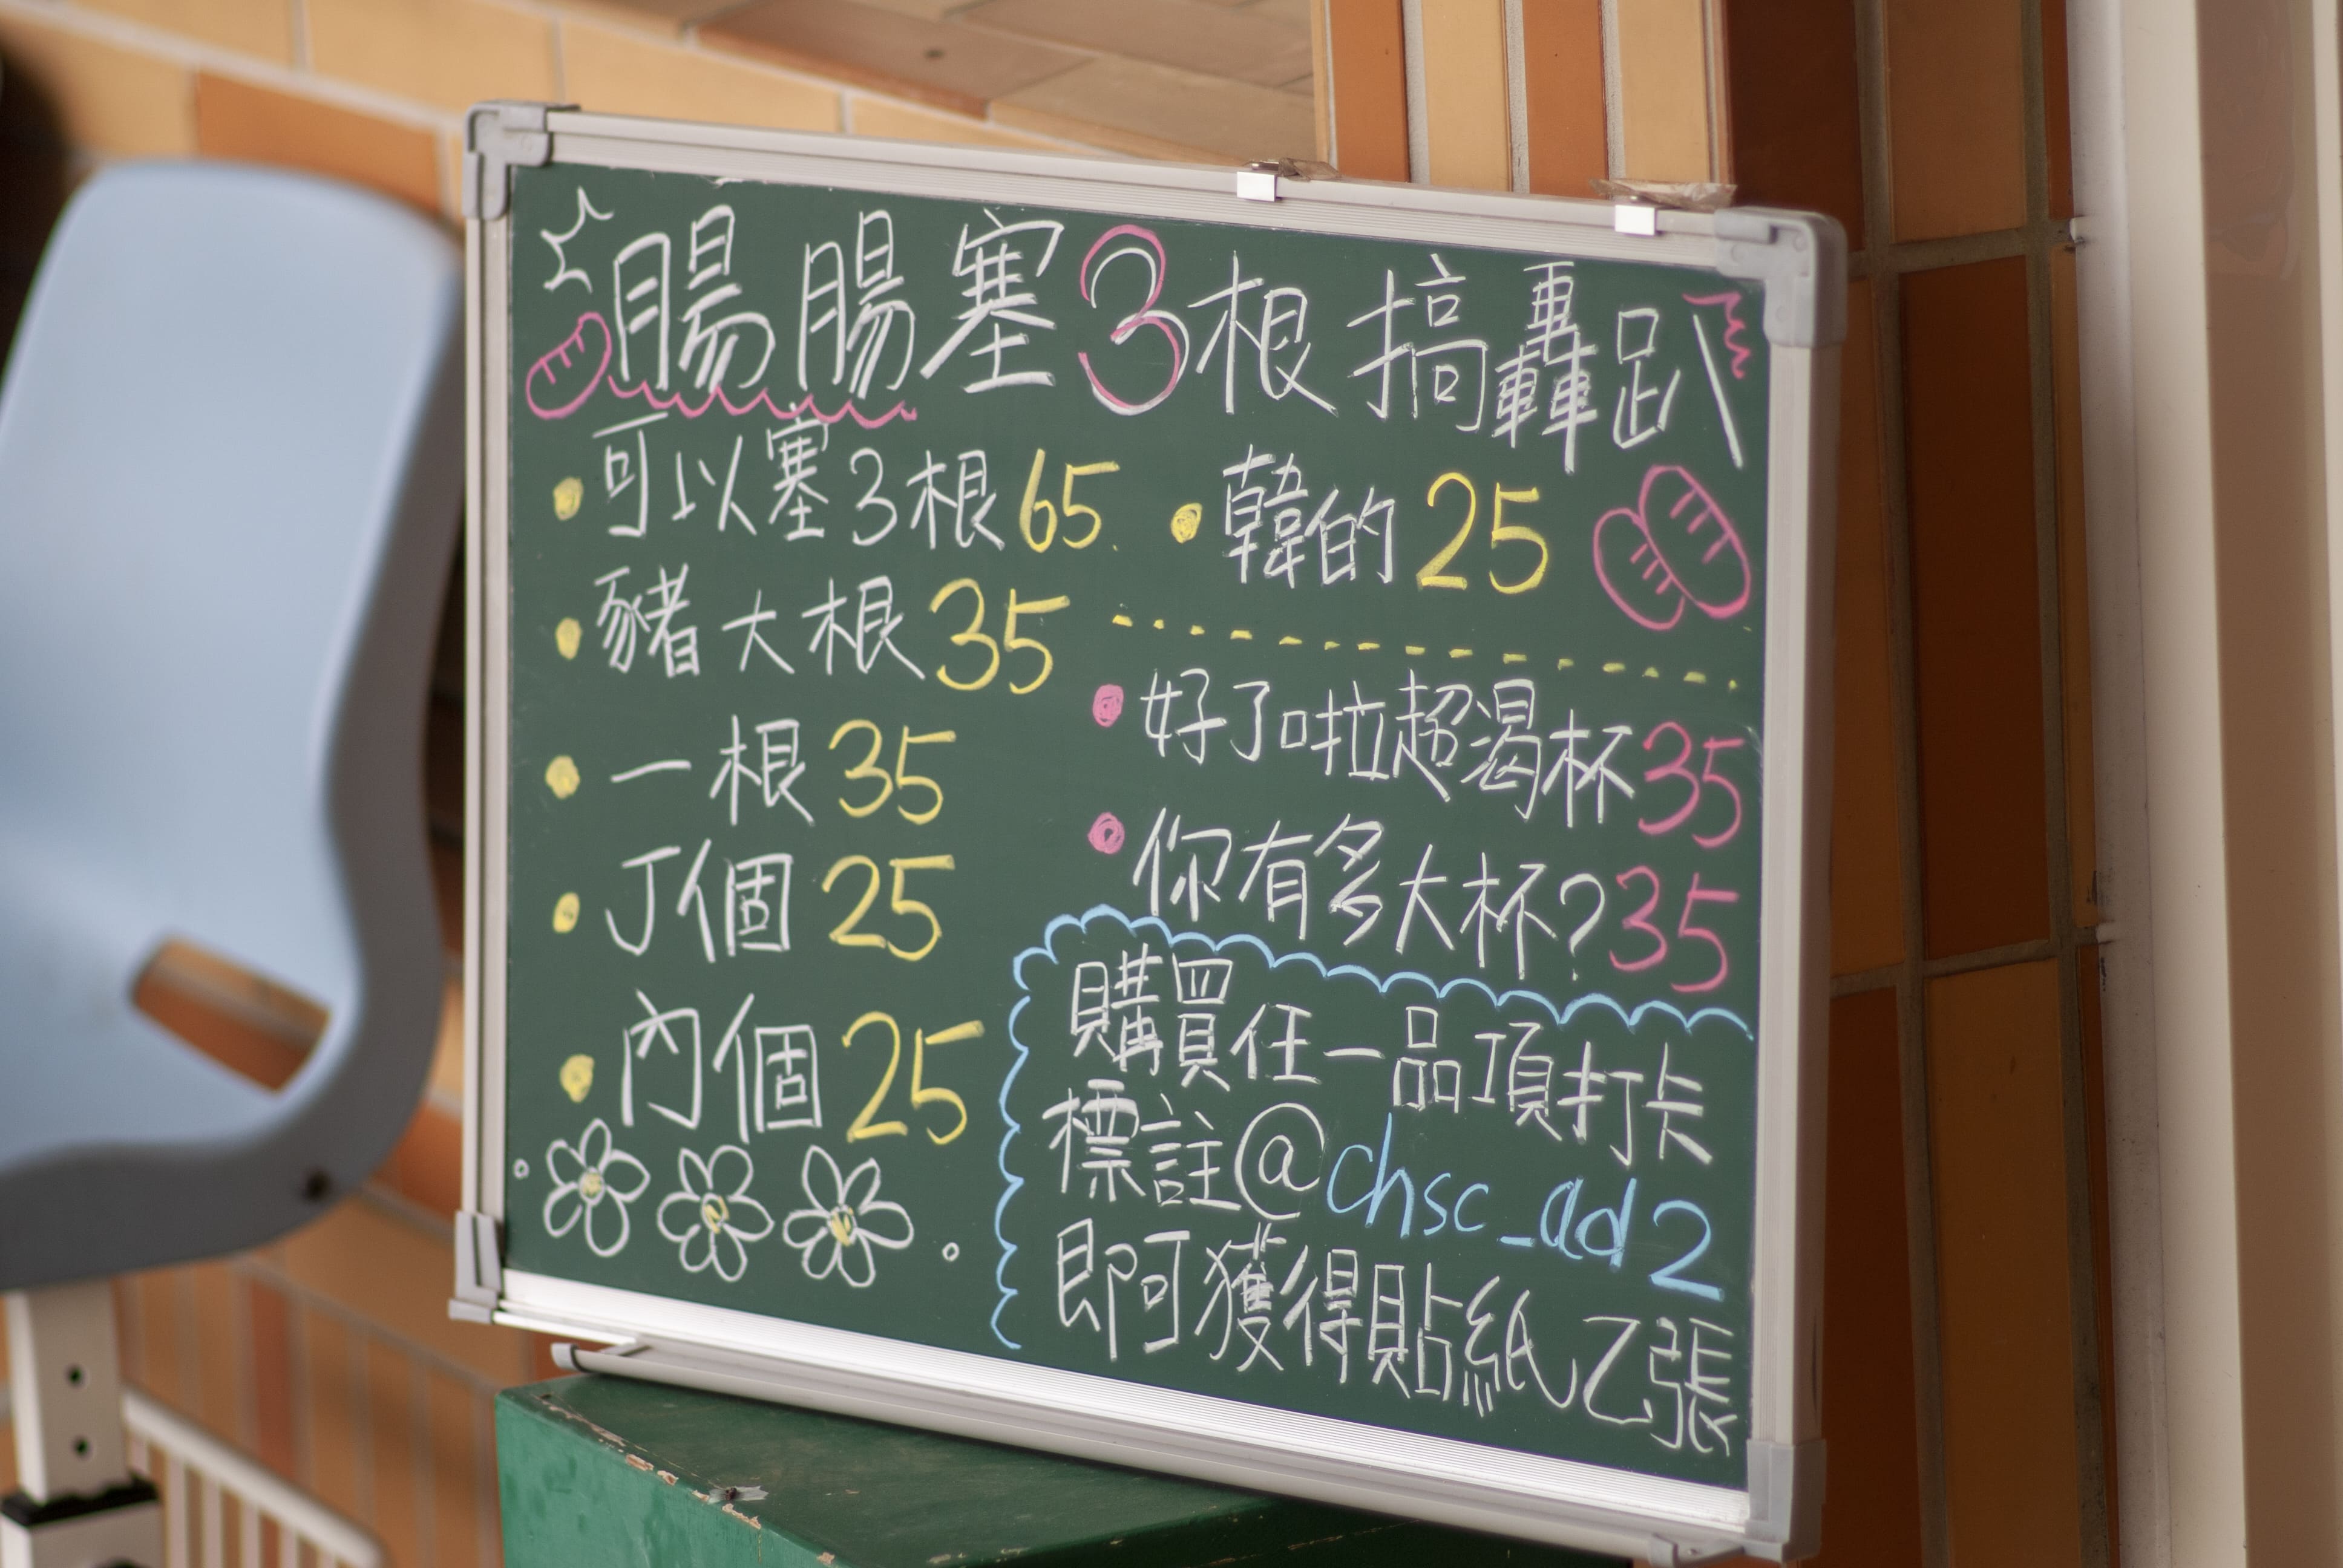 腸腸塞3根搞轟趴
可以塞3根65
豬大根35
一根35
J個25
內個25
韓的25
好了啦超渴杯35
你有多大杯?35
購買任一品項打卡
標註@chsc_ad2
即可獲得貼紙乙張